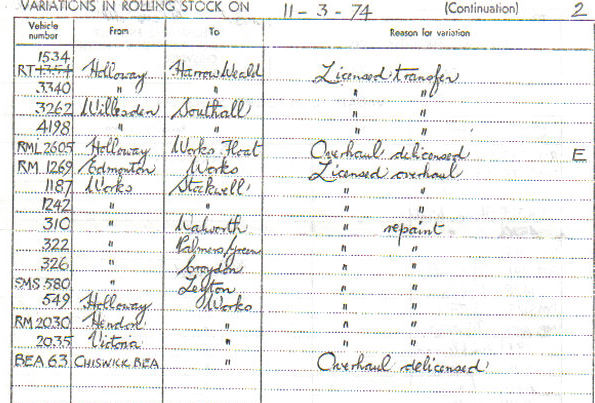 VARIATIONS IN ROLLING STOCK ON 11-3-74 (Continuation) 2
Vehicle number From To Reason for variation
1534
RT 1354 Holloway Harrow Weald Licensed transfer
3340 " " " "
3262 Willesden Southall " "
4198 " " " "
RML 2605 Holloway Works Float Overhaul delicensed E
RM 1269 Edmonton Works Licensed overhaul
1187 Works Stockwell " "
1242 " " " "
310 " Walworth " repaint
322 " Palmers Green " "
326 " Croydon " "
SMS 580 " Leyton " "
549 Holloway Works " "
RM 2030 Hendon " " "
2035 Victoria " " "
BEA 63 CHISWICK BEA " Overhaul delicensed